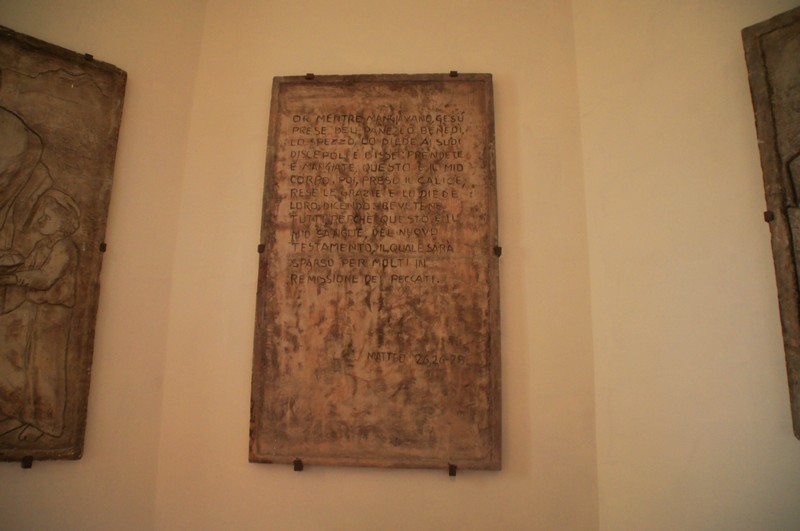 OR MENTRE MANGIAVANO, GESÙ
PRESE DEL PANE, LO BENEDÌ,
LO SPEZZÒ, LO DIEDE AI SUOI
DISCEPOLI E DISSE: PRENDETE
E MANGIATE, QUESTO È IL MIO
CORPO. POI, PRESO IL CALICE,
RESE LE GRAZIE E LO DIEDE
LORO, DICENDO: BEVETENE
TUTTI, PERCHÉ QUESTO È IL
MIO SANGUE, DEL NUOVO
TESTAMENTO, IL QUALE SARÀ
SPARSO PER MOLTI IN
REMISSIONE DEI PECCATI.
MATTEO 26,26-28